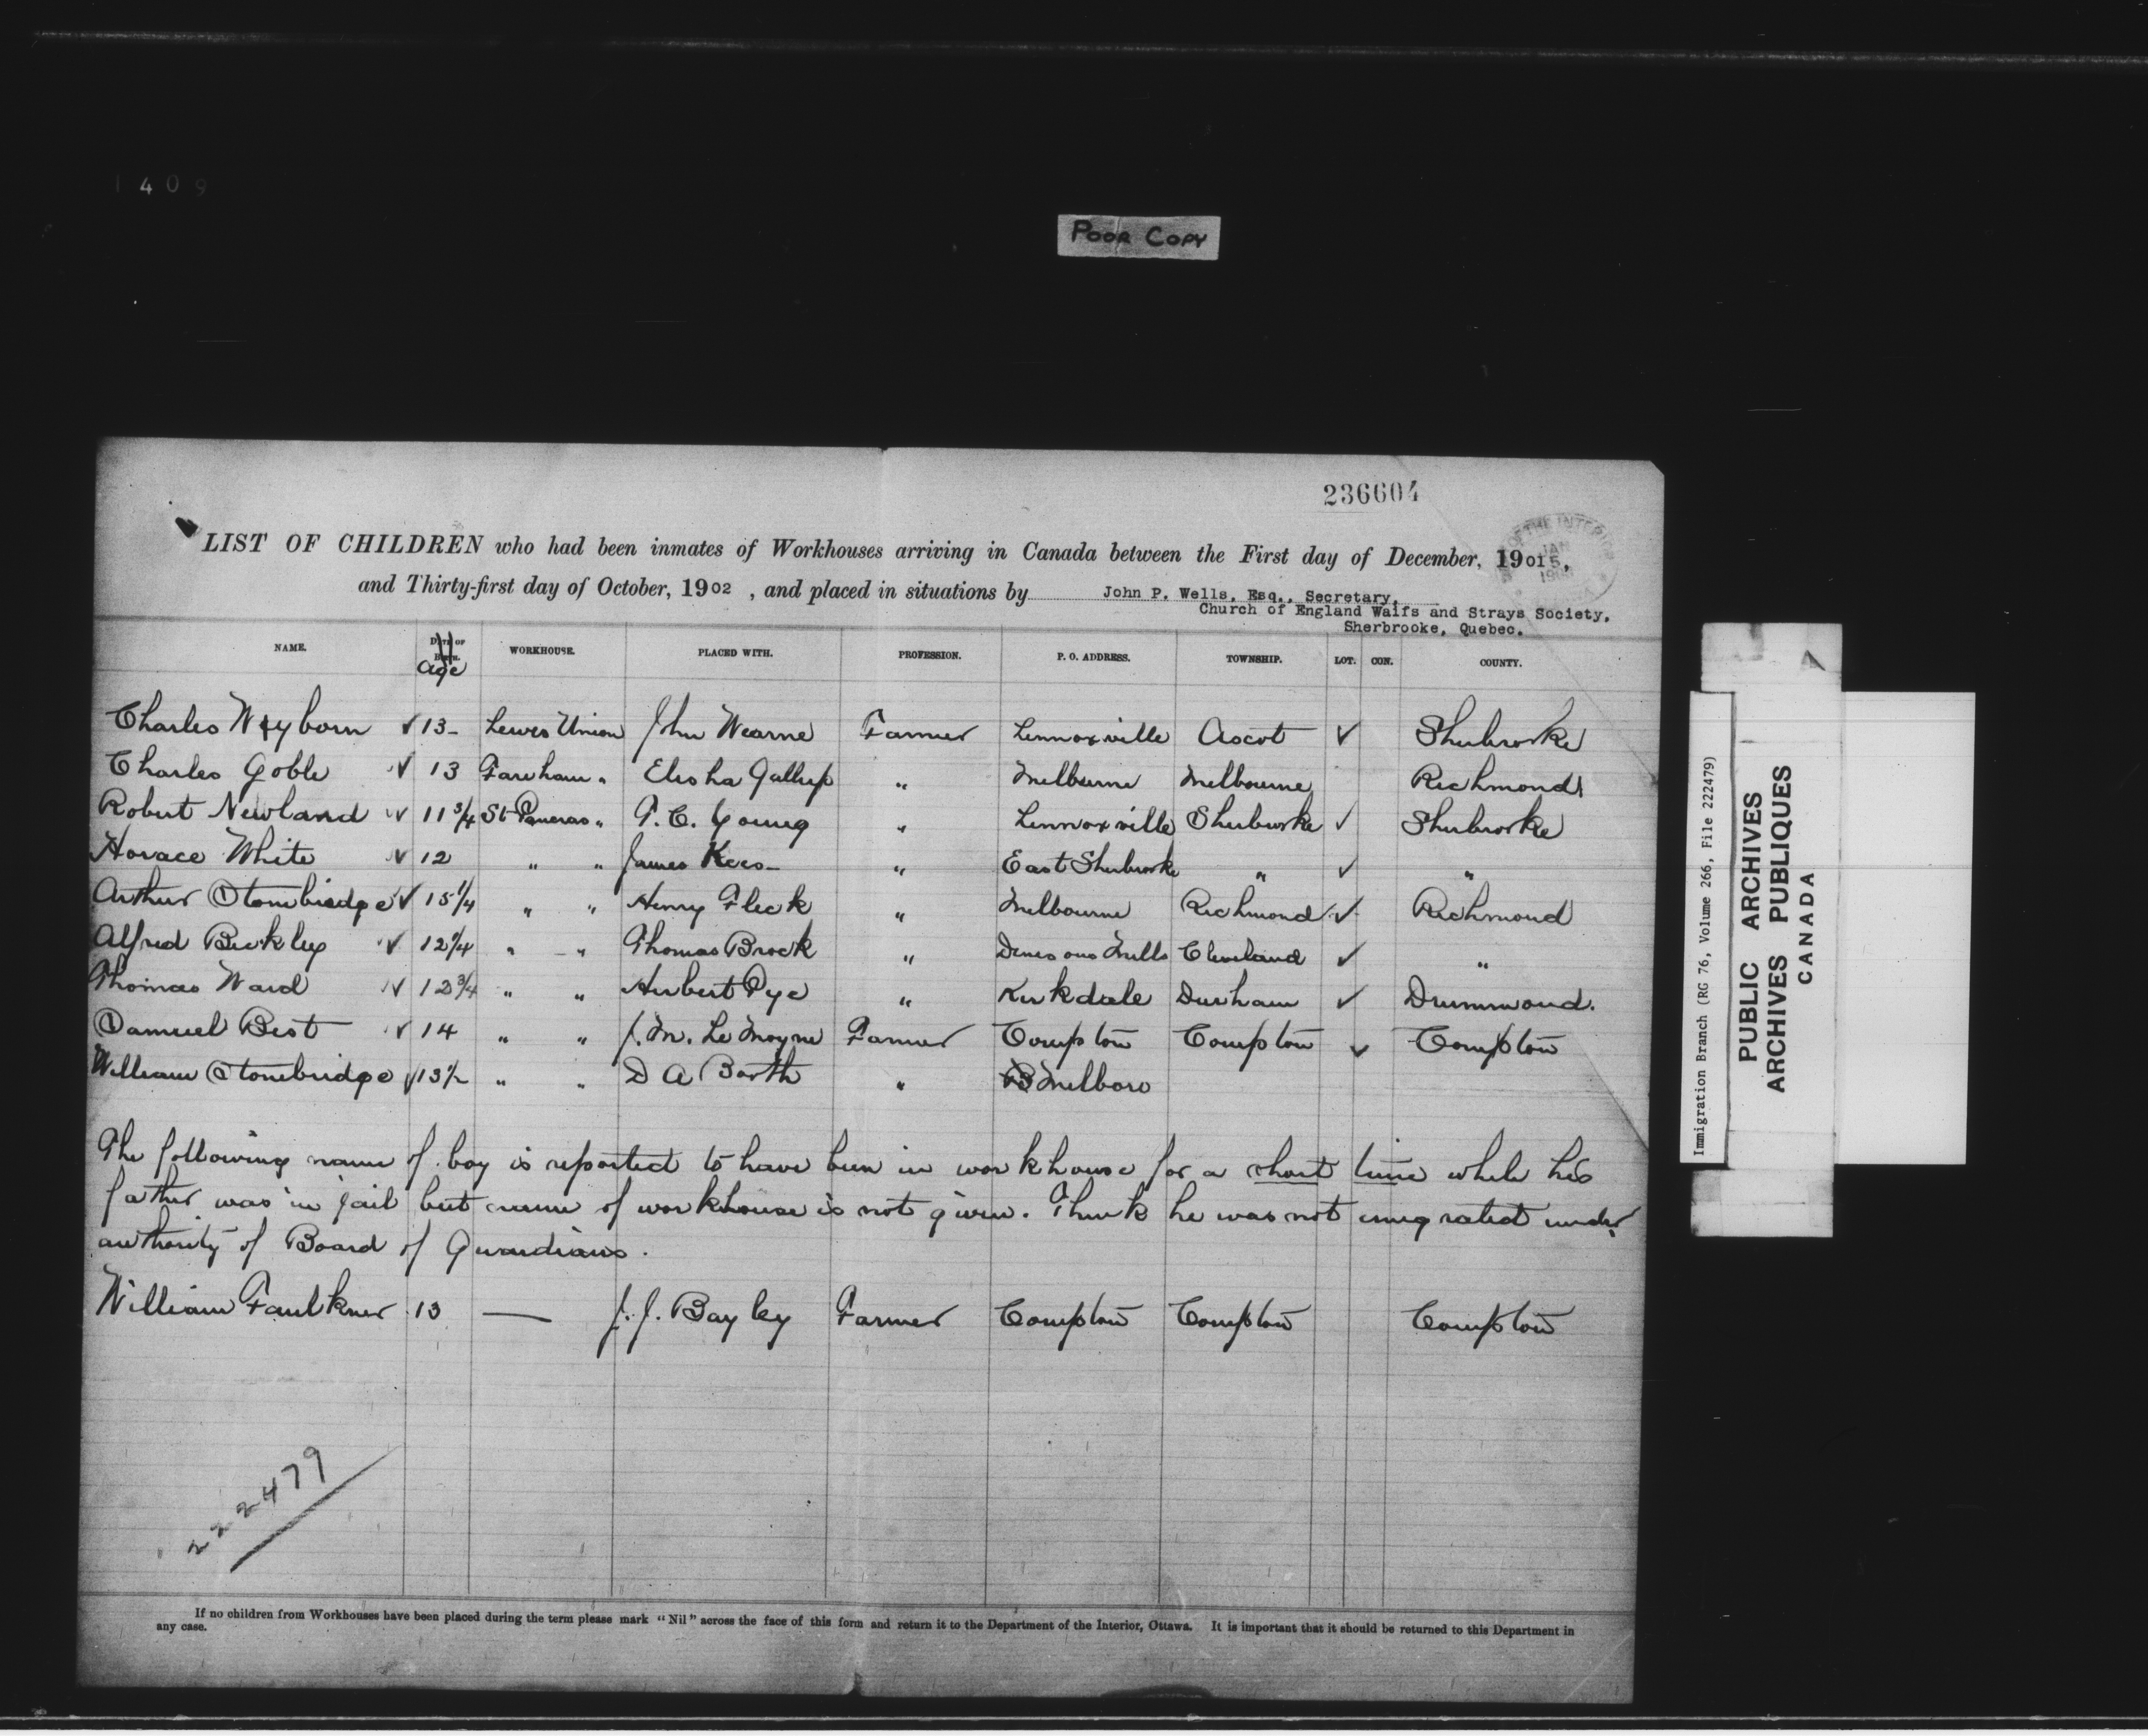 1409
POOR COPY
236604
LIST OF CHILDREN who had been inmates of Workhouses arriving in Canada between the First day of December, 1901,
and Thirty-first day of October, 1902, and placed in situations by John P. Wells, Esq., Secretary,
Church of England Waifs and Strays Society,
Sherbrooke, Quebec.
NAME. DATE OF BIRTH. Age WORKHOUSE. PLACED WITH. PROFESSION. P. O. ADDRESS. TOWNSHIP. LOT. CON. COUNTY.
Charles Wyborn ✓ 13 - Lewes Union John Wearne Farmer Lennoxville Ascot ✓ Sherbrooke
Charles Goble ✓ 13 Fareham " Elisha Gallup " Melburne Melbourne Richmond
Robert Newland ✓ 11 3/4 St Pancras " T. C. Young " Lennoxville Sherbrooke ✓ Sherbrooke
Horace White ✓ 12 " " James Kees - " East Sherbrooke " ✓ "
Arthur Stonebridge ✓ 15 1/4 " " Henry Fleck " Melbourne Richmond ✓ Richmond
Alfred Bickley ✓ 12 1/4 " " Thomas Brock " Mills Cleveland ✓ "
Thomas Ward ✓ 12 3/4 " " Herbert Pye " Kirkdale Durham ✓ Drummond.
Samuel Best ✓ 14 " " J. M. Le Moyne Farmer Compton Compton ✓ Compton
William Stonebridge ✓ 13 1/2 " " D A Barth " Melboro
The following name of boy is reported to have been in workhouse for a short time while his
father was in jail but name of workhouse is not given. Think he was not emigrated under
authority of Board of Guardians.
William Faulkner 13 — J. J. Bayley Farmer Compton Compton Compton
222479
If no children from Workhouses have been placed during the term please mark "Nil" across the face of this form and return it to the Department of the Interior, Ottawa. It is important that it should be returned to this Department in
any case.
Immigration Branch (RG 76, Volume 266, File 222479)
PUBLIC ARCHIVES
ARCHIVES PUBLIQUES
CANADA